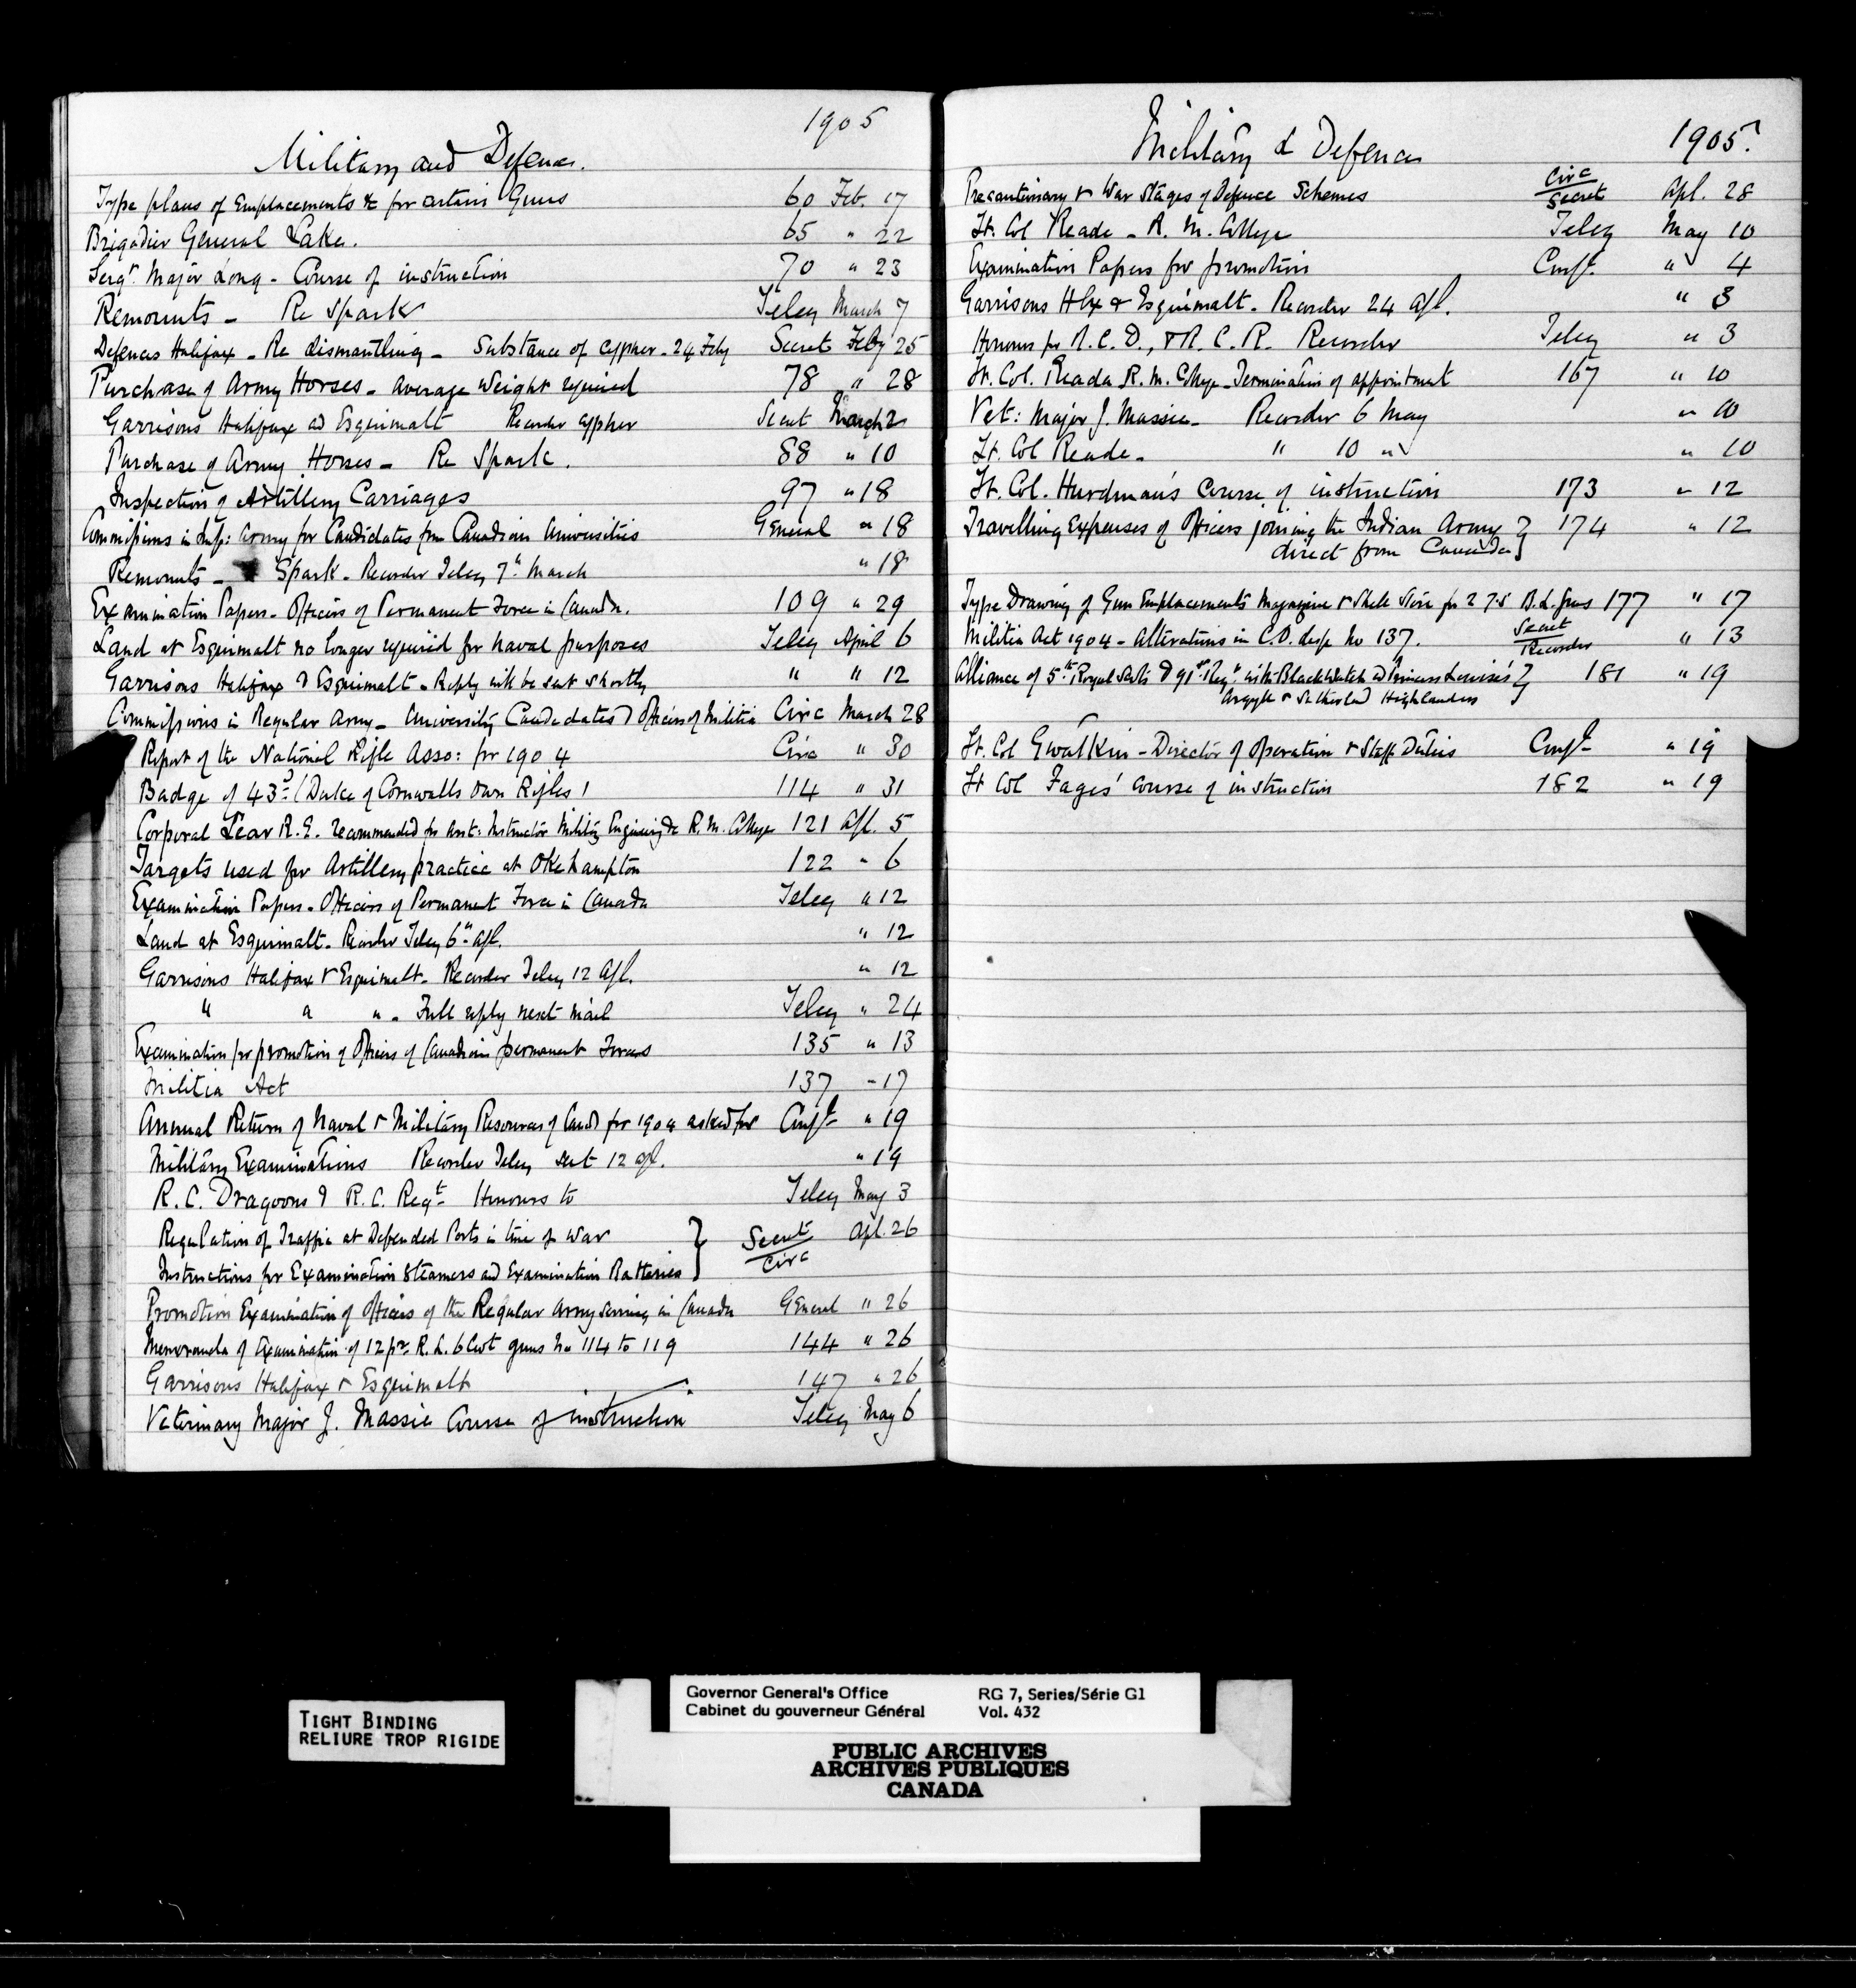 1905
Military and Defence.
Type plans of Emplacements &c for certain Guns 60 Feb. 17
Brigadier General Lake. 65 " 22
Sergt. Major Long - Course of instruction 70 " 23
Remounts - Re Spark Teleg March 7
Defences Halifax - Re dismantling - Substance of cypher - 24 Feby Secret Feby 25
Purchase of Army Horses - average weight required 78 " 28
Garrisons Halifax and Esquimalt Recorder cypher Secret March 2
Purchase of Army Horses - Re Spark. 88 " 10
Inspection of Artillery Carriages 97 " 18
Commissions in Imp: Army for Candidates from Canadian Universities General " 18
Remounts - Spark - Recorder Teleg 7th March " 18
Examination Papers - Officers of Permanent Force in Canada. 109 " 29
Land at Esquimalt no longer required for naval purposes Teleg April 6
Garrisons Halifax & Esquimalt - Reply will be sent shortly " " 12
Commissions in Regular Army - University Candidates & Officers of Militia Circ March 28
Report of the National Rifle Asso: for 1904 Circ " 30
Badge of 43rd (Duke of Cornwalls Own Rifles) 114 " 31
Corporal Lear R.E. recommended for Asst: Instructor Military Engineering &c R. M. College 121 Apl. 5
Targets used for Artillery practice at Okehampton 122 " 6
Examination Papers - Officers of Permanent Force in Canada Teleg " 12
Land at Esquimalt - Recorder Teleg 6th Apl. " 12
Garrisons Halifax & Esquimalt - Recorder Teleg 12 Apl. " 12
" " " - Full reply next mail Teleg " 24
Examination for promotion of Officers of Canadian permanent Forces 135 " 13
Militia Act 137 - 17
Annual Return of Naval & Military Resources of Cand for 1904 asked for Conf- " 19
Military Examinations Recorder Teleg sent 12 Apl. " 19
R.C. Dragoons & R.C. Regt- Honours to Teleg May 3
Regulation of Traffic at Defended Ports in time of War } Secret Circ Apl. 26
Instructions for Examination Steamers and Examination Batteries }
Promotion Examination of Officers of the Regular Army serving in Canada General " 26
Memoranda of Examination of 12 pr. B.L. 6 Cwt guns No 114 to 119 144 " 26
Garrisons Halifax & Esquimalt 147 " 26
Veterinary Major J. Massie Course of instruction Teleg May 6
Military & Defence 1905.
Precautionary & War Stages of Defence Schemes Circ Secret Apl. 28
Lt. Col Reade - R. M. College Teleg May 10
Examination Papers for promotion Conf- " 4
Garrisons Hfx & Esquimalt - Recorder 24 Apl. " 3
Honours for R.C.D., & R.C.R. Recorder Teleg " 3
Lt. Col. Reade R.M. College - Termination of appointment 167 " 10
Vet: Major J. Massie - Recorder 6 May " 10
Lt. Col Reade - " 10 " " 10
Lt. Col. Hurdman's course of instruction 173 " 12
Travelling Expenses of Officers joining the Indian Army } 174 " 12
direct from Canada }
Type Drawing of Gun Emplacements Magazine & Shell Store for 2 7.5 B.L. guns 177 " 17
Militia Act 1904 - alterations in C.O. desp No 137. Secret Recorder " 13
Alliance of 5th Royal Scots & 91st Regt with Black Watch and Princess Louise's } 181 " 19
Argyle & Sutherland Highlanders
Lt. Col Gwatkin - Director of Operation & Staff Duties Conf- " 19
Lt Col Fages' course of instruction 182 " 19
TIGHT BINDING
RELIURE TROP RIGIDE
Governor General's Office RG 7, Series/Série G1
Cabinet du gouverneur Général Vol. 432
PUBLIC ARCHIVES
ARCHIVES PUBLIQUES
CANADA